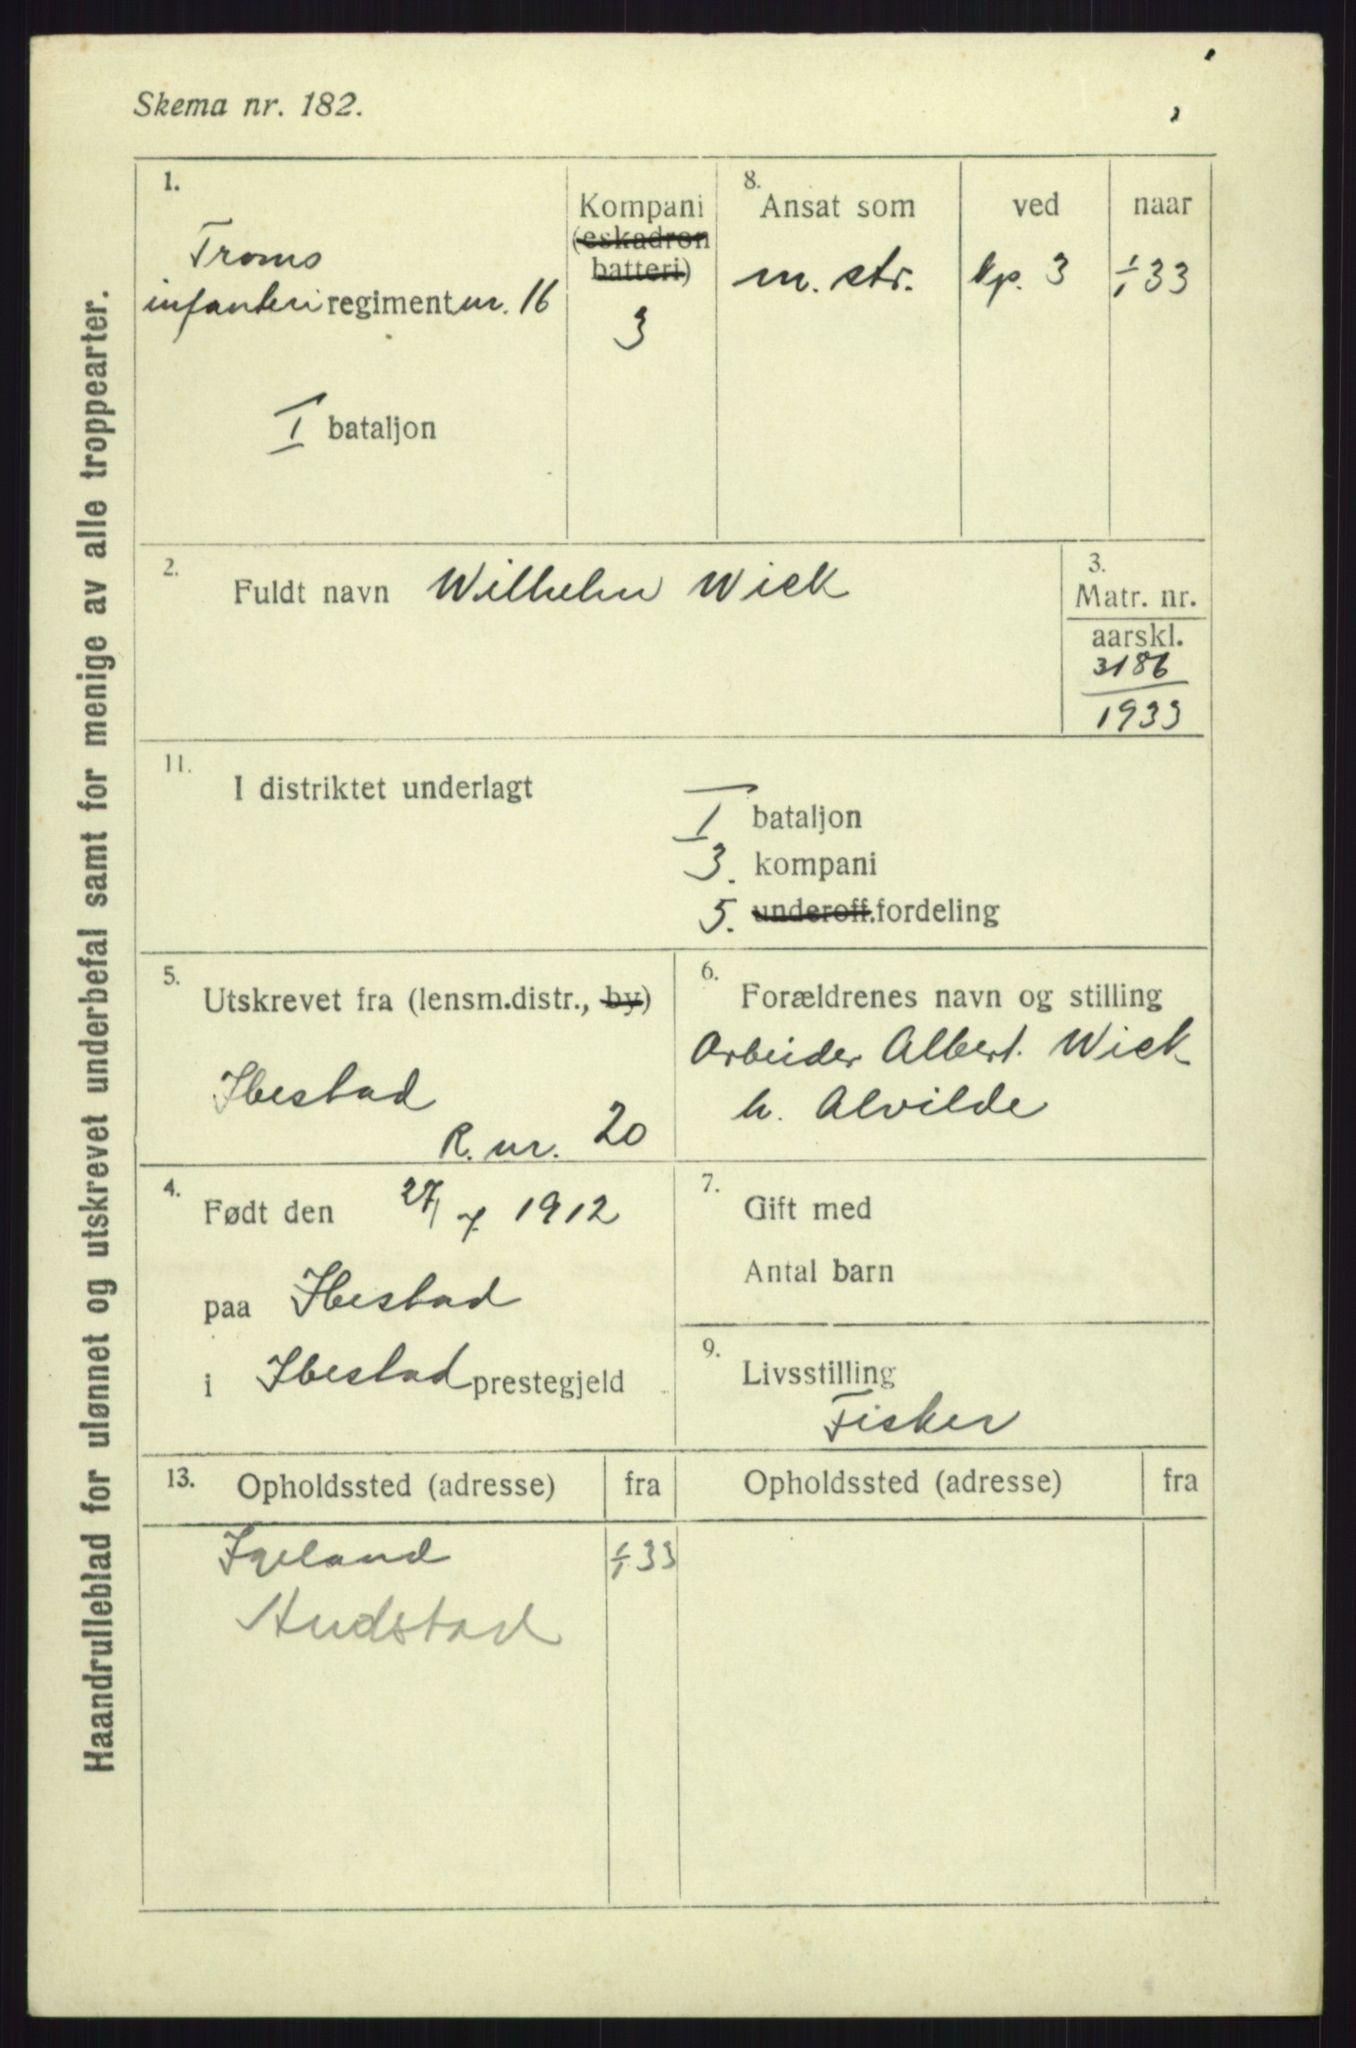 Skema nr. 182.
Haandrulleblad for ulønnet og utskrevet underbefal samt for menige av alle troppearter.
1.
Troms
infanteri regiment nr. 16
I bataljon
Kompani
(eskadron
batteri)
3
8.
Ansat som
m. str.
ved
kp. 3
naar
1/1 33
2.
Fuldt navn Wilhelm Wick
3.
Matr. nr.
aarskl.
3186
1933
11.
I distriktet underlagt
I bataljon
3. kompani
5. underoff.fordeling
5.
Utskrevet fra (lensm.distr., by)
Ibestad
R. nr. 20
6.
Forældrenes navn og stilling
Arbeider Albert Wick
h. Alvilde
4.
Født den 27/7 1912
paa Ibestad
i Ibestad prestegjeld
7.
Gift med
Antal barn
9.
Livsstilling
Fisker
13.
Opholdssted (adresse) fra
Opholdssted (adresse) fra
1/1 33